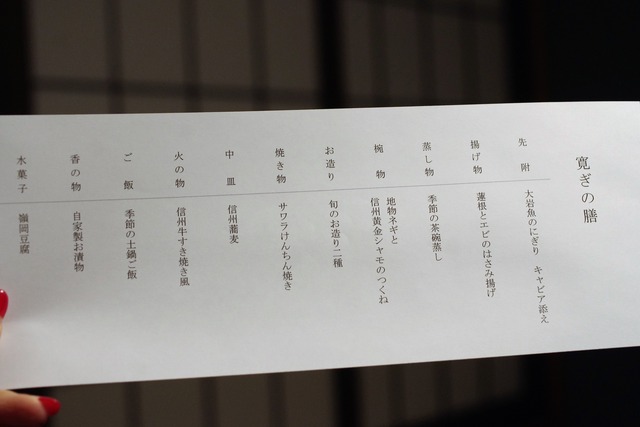 寛ぎの膳
先附
大岩魚のにぎり キャビア添え
揚げ物
蓮根とエビのはさみ揚げ
蒸し物
季節の茶碗蒸し
椀物
地物ネギと
信州黄金シャモのつくね
お造り
旬のお造り二種
焼き物
サワラけんちん焼き
中皿
信州蕎麦
火の物
信州牛すき焼き風
ご飯
季節の土鍋ご飯
香の物
自家製お漬物
水菓子
嶺岡豆腐